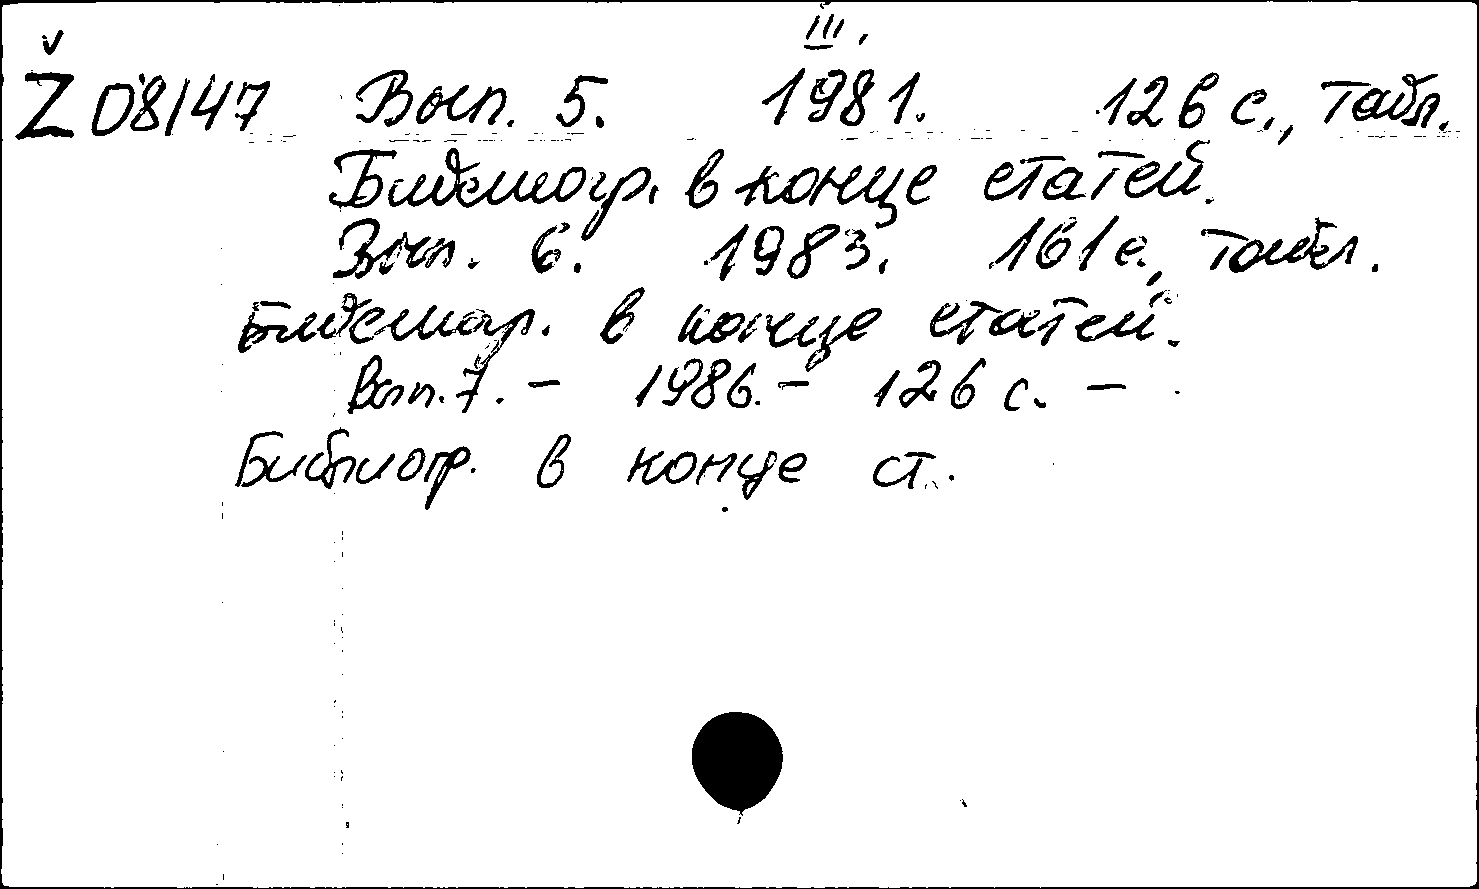 III.
Ž 08/47 Вып. 5. 1981. 126 с., табл.
Библиогр. в конце статей.
Вып. 6. 1983. 161 с., табл.
Библиогр. в конце статей.
Вып. 7. – 1986. – 126 с. –
Библиогр. в конце ст.